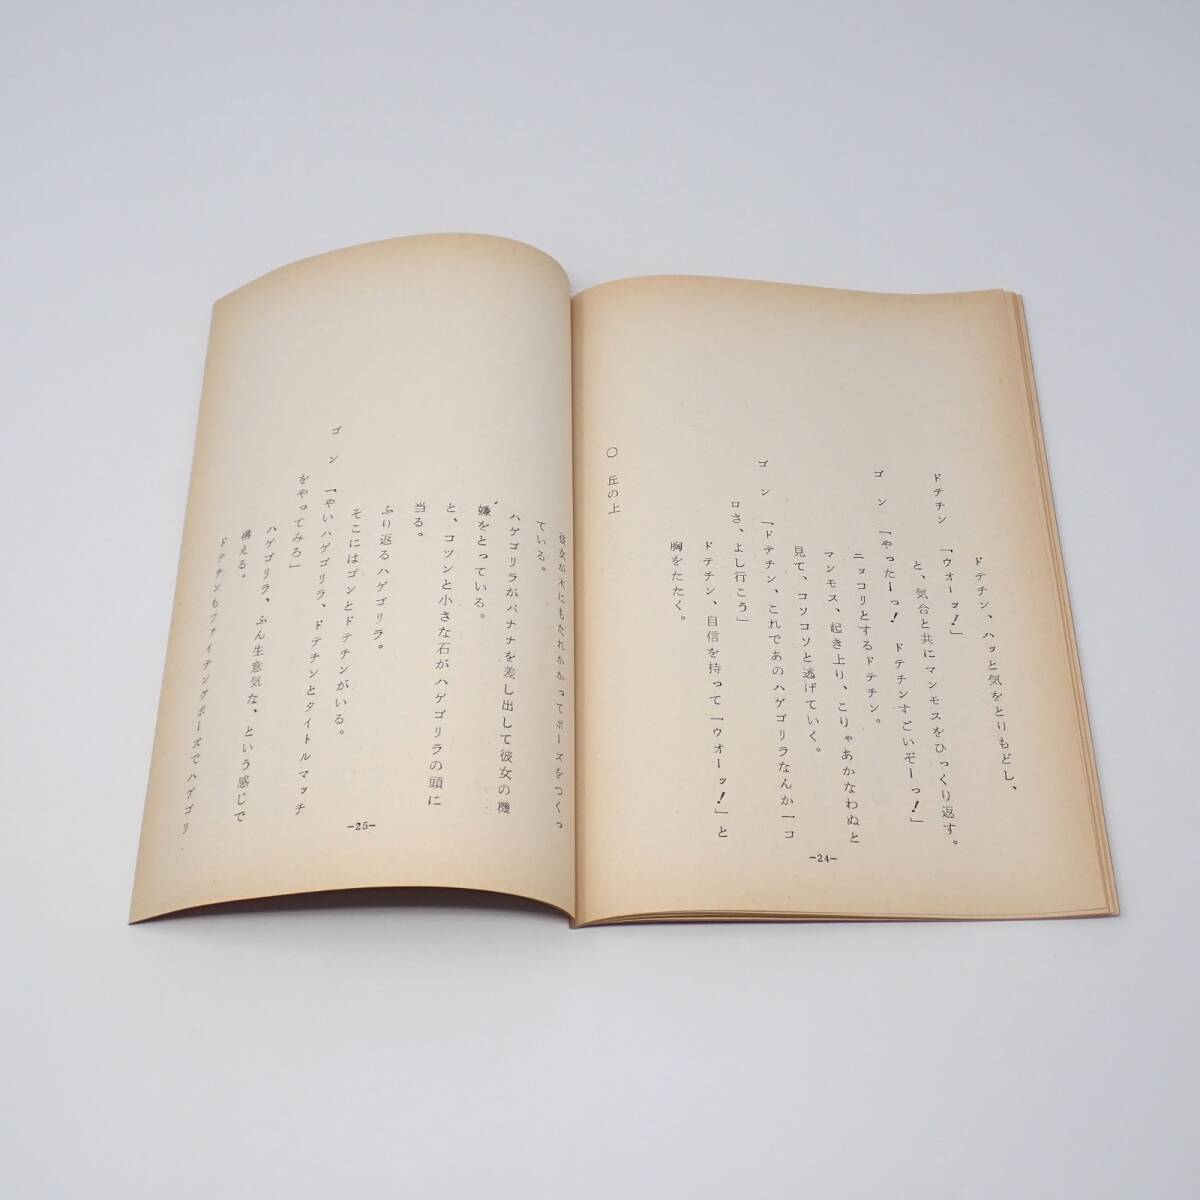 ドテチン、ハッと気をとりもどし、
ドテチン「ウオーッ！」
と、気合と共にマンモスをひっくり返す。
ゴン「やったーっ！　ドテチンすごいぞーっ！」
ニッコリとするドテチン。
マンモス、起き上り、こりゃあかなわぬと
見て、コソコソと逃げていく。
ゴン「ドテチン、これであのハゲゴリラなんか一コ
ロさ、よし行こう」
ドテチン、自信を持って「ウオーッ！」と
胸をたたく。
○　丘の上
-24-
彼女が木にもたれかかってポーズをつくっ
ている。
ハゲゴリラがバナナを差し出して彼女の機
嫌をとっている。
と、コツンと小さな石がハゲゴリラの頭に
当る。
ふり返るハゲゴリラ。
そこにはゴンとドテチンがいる。
ゴン「やいハゲゴリラ、ドテチンとタイトルマッチ
をやってみろ」
ハゲゴリラ、ふん生意気な、という感じで
構える。
ドテチンもファイテングポーズでハゲゴリ
-25-